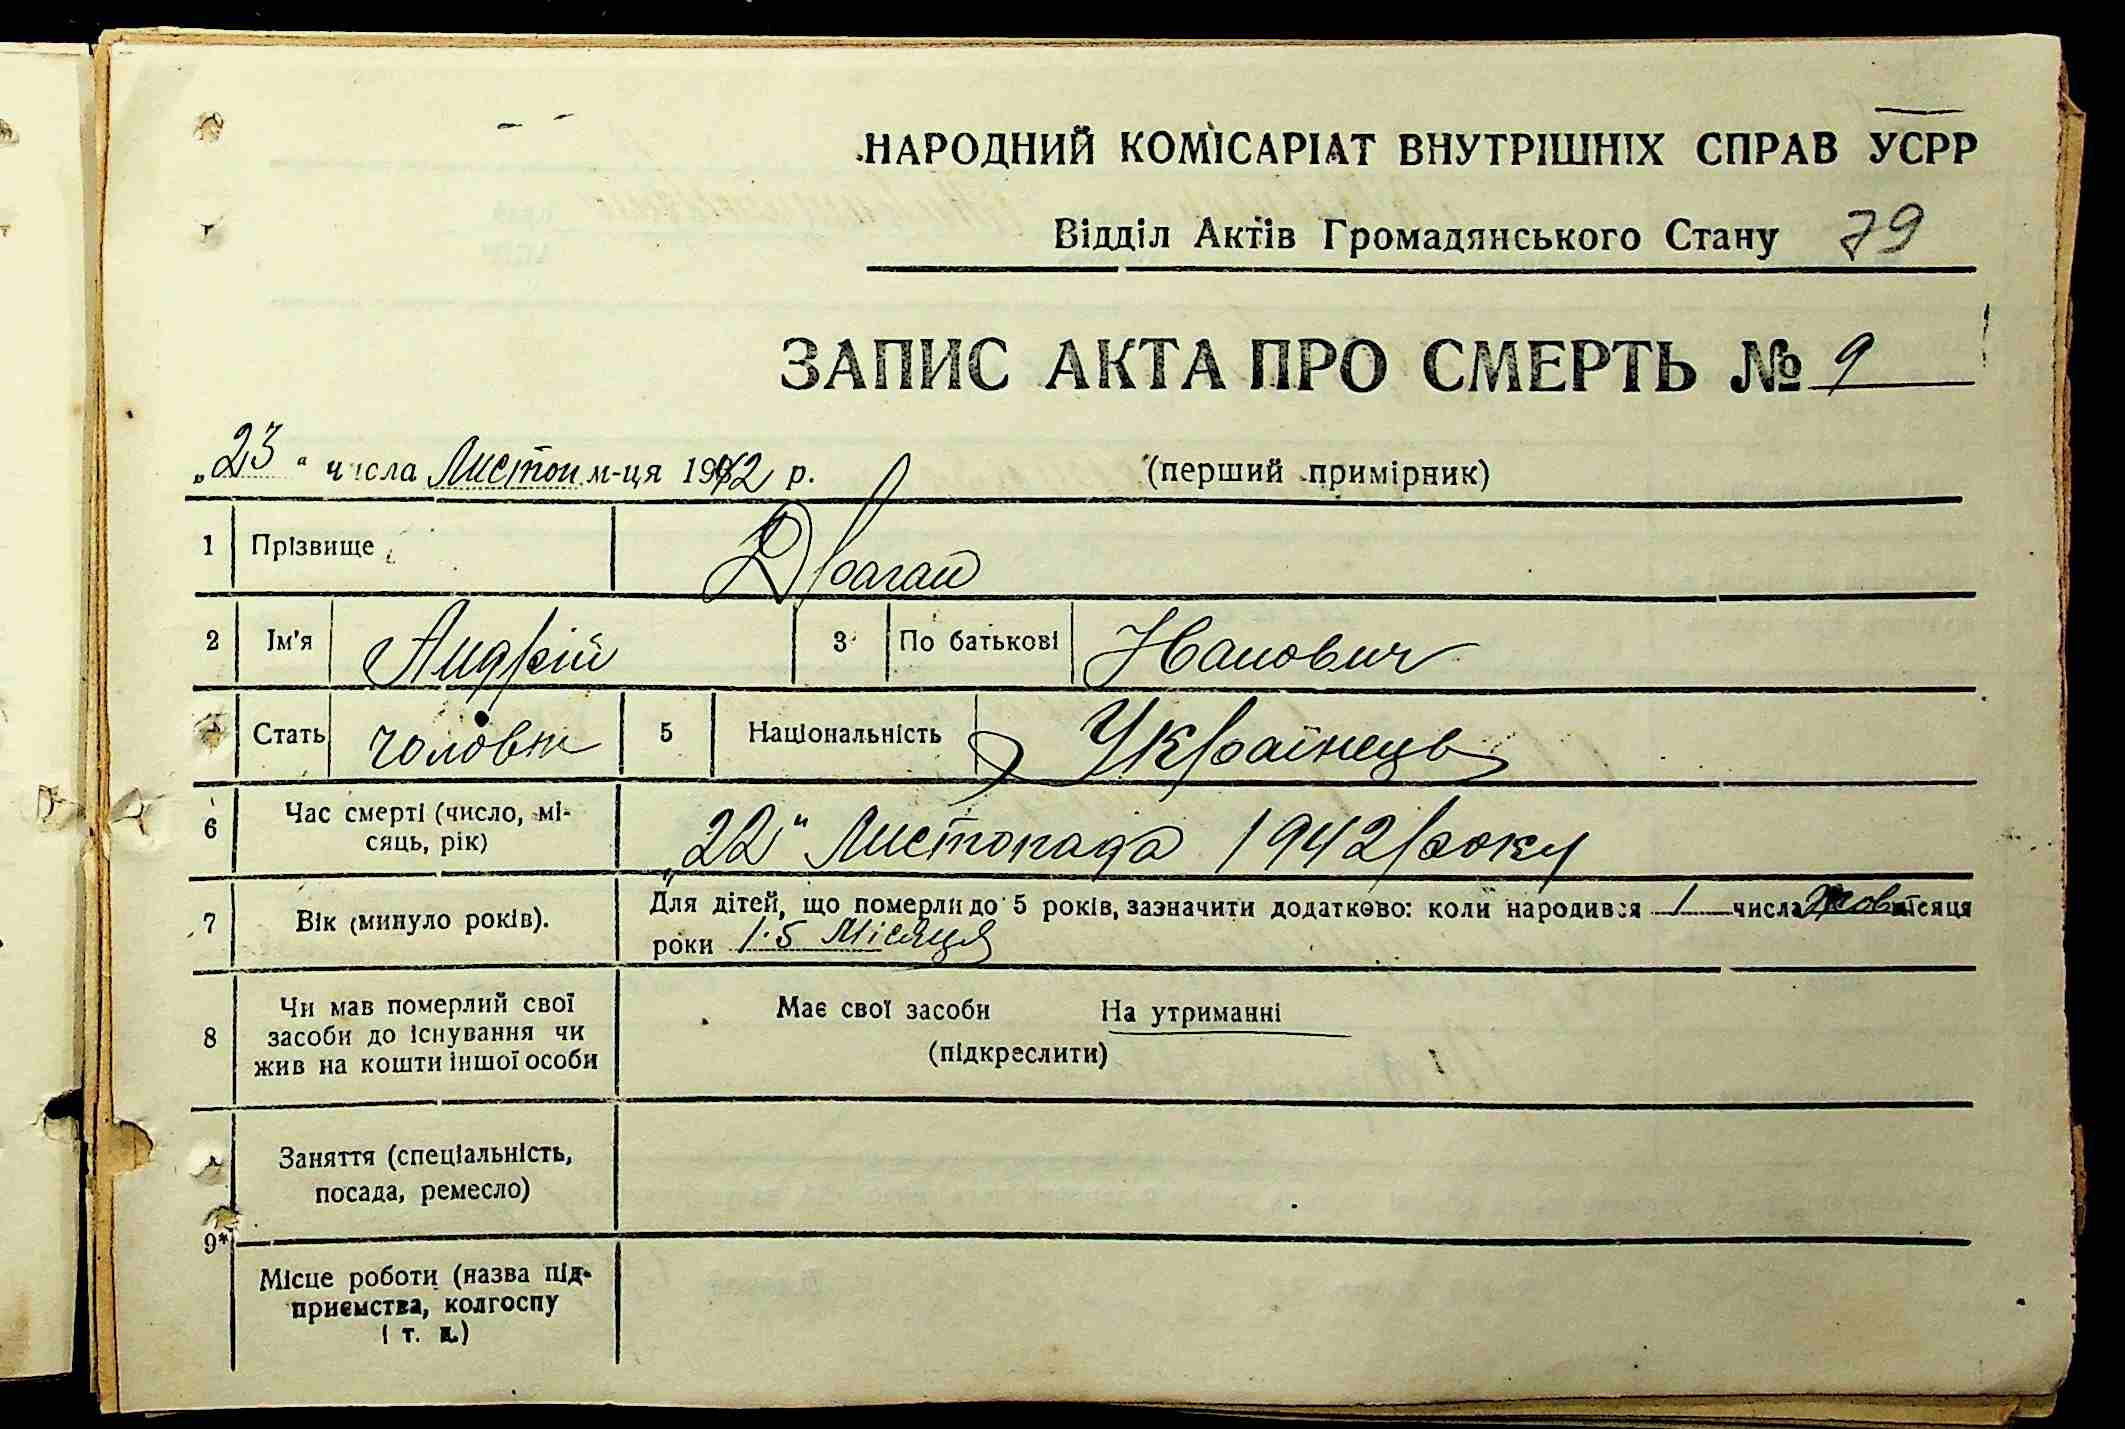 НАРОДНИЙ КОМІСАРІАТ ВНУТРІШНІХ СПРАВ УСРР
Відділ Актів Громадянського Стану 79
ЗАПИС АКТА ПРО СМЕРТЬ № 9
„23“ числа Листоп м-ця 1942 р. (перший примірник)
1 Прізвище Драган
2 Ім'я Андрій 3 По батькові Іванович
Стать чоловік 5 Національність Українець
6 Час смерті (число, мі-
сяць, рік) „22“ Листопада 1942 року
7 Вік (минуло років). Для дітей, що померли до 5 років, зазначити додатково: коли народився 1 числа Жовт місяця
роки 1.5 Місяця
8 Чи мав померлий свої
засоби до існування чи
жив на кошти іншої особи
Має свої засоби На утриманні
(підкреслити)
Заняття (спеціальність,
посада, ремесло)
9*
Місце роботи (назва під-
приємства, колгоспу
і т. д.)